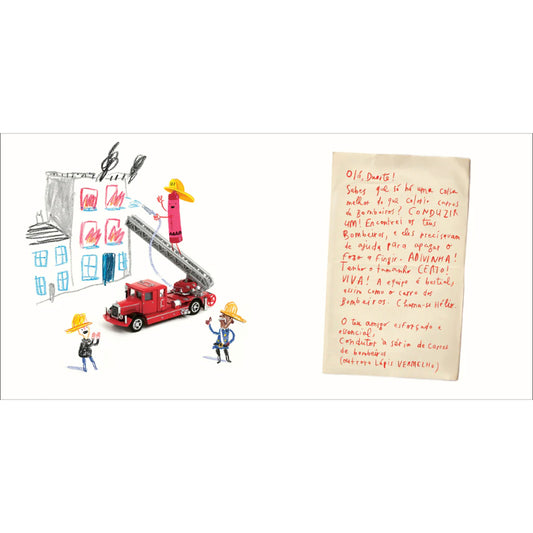 Olá, Duarte!
Sabes que só há uma coisa
melhor do que colorir carros
de Bombeiros? CONDUZIR
UM! Encontrei os teus
Bombeiros, e eles precisavam
de ajuda para apagar o
fogo a fingir. ADIVINHA!
Tenho o tamanho CERTO!
VIVA! A equipa é bestial,
assim como o carro dos
Bombeiros. Chama-se Hélio.
O teu amigo esforçado e
essencial,
Condutor à séria de Carros
de bombeiros
(outrora Lápis VERMELHO)